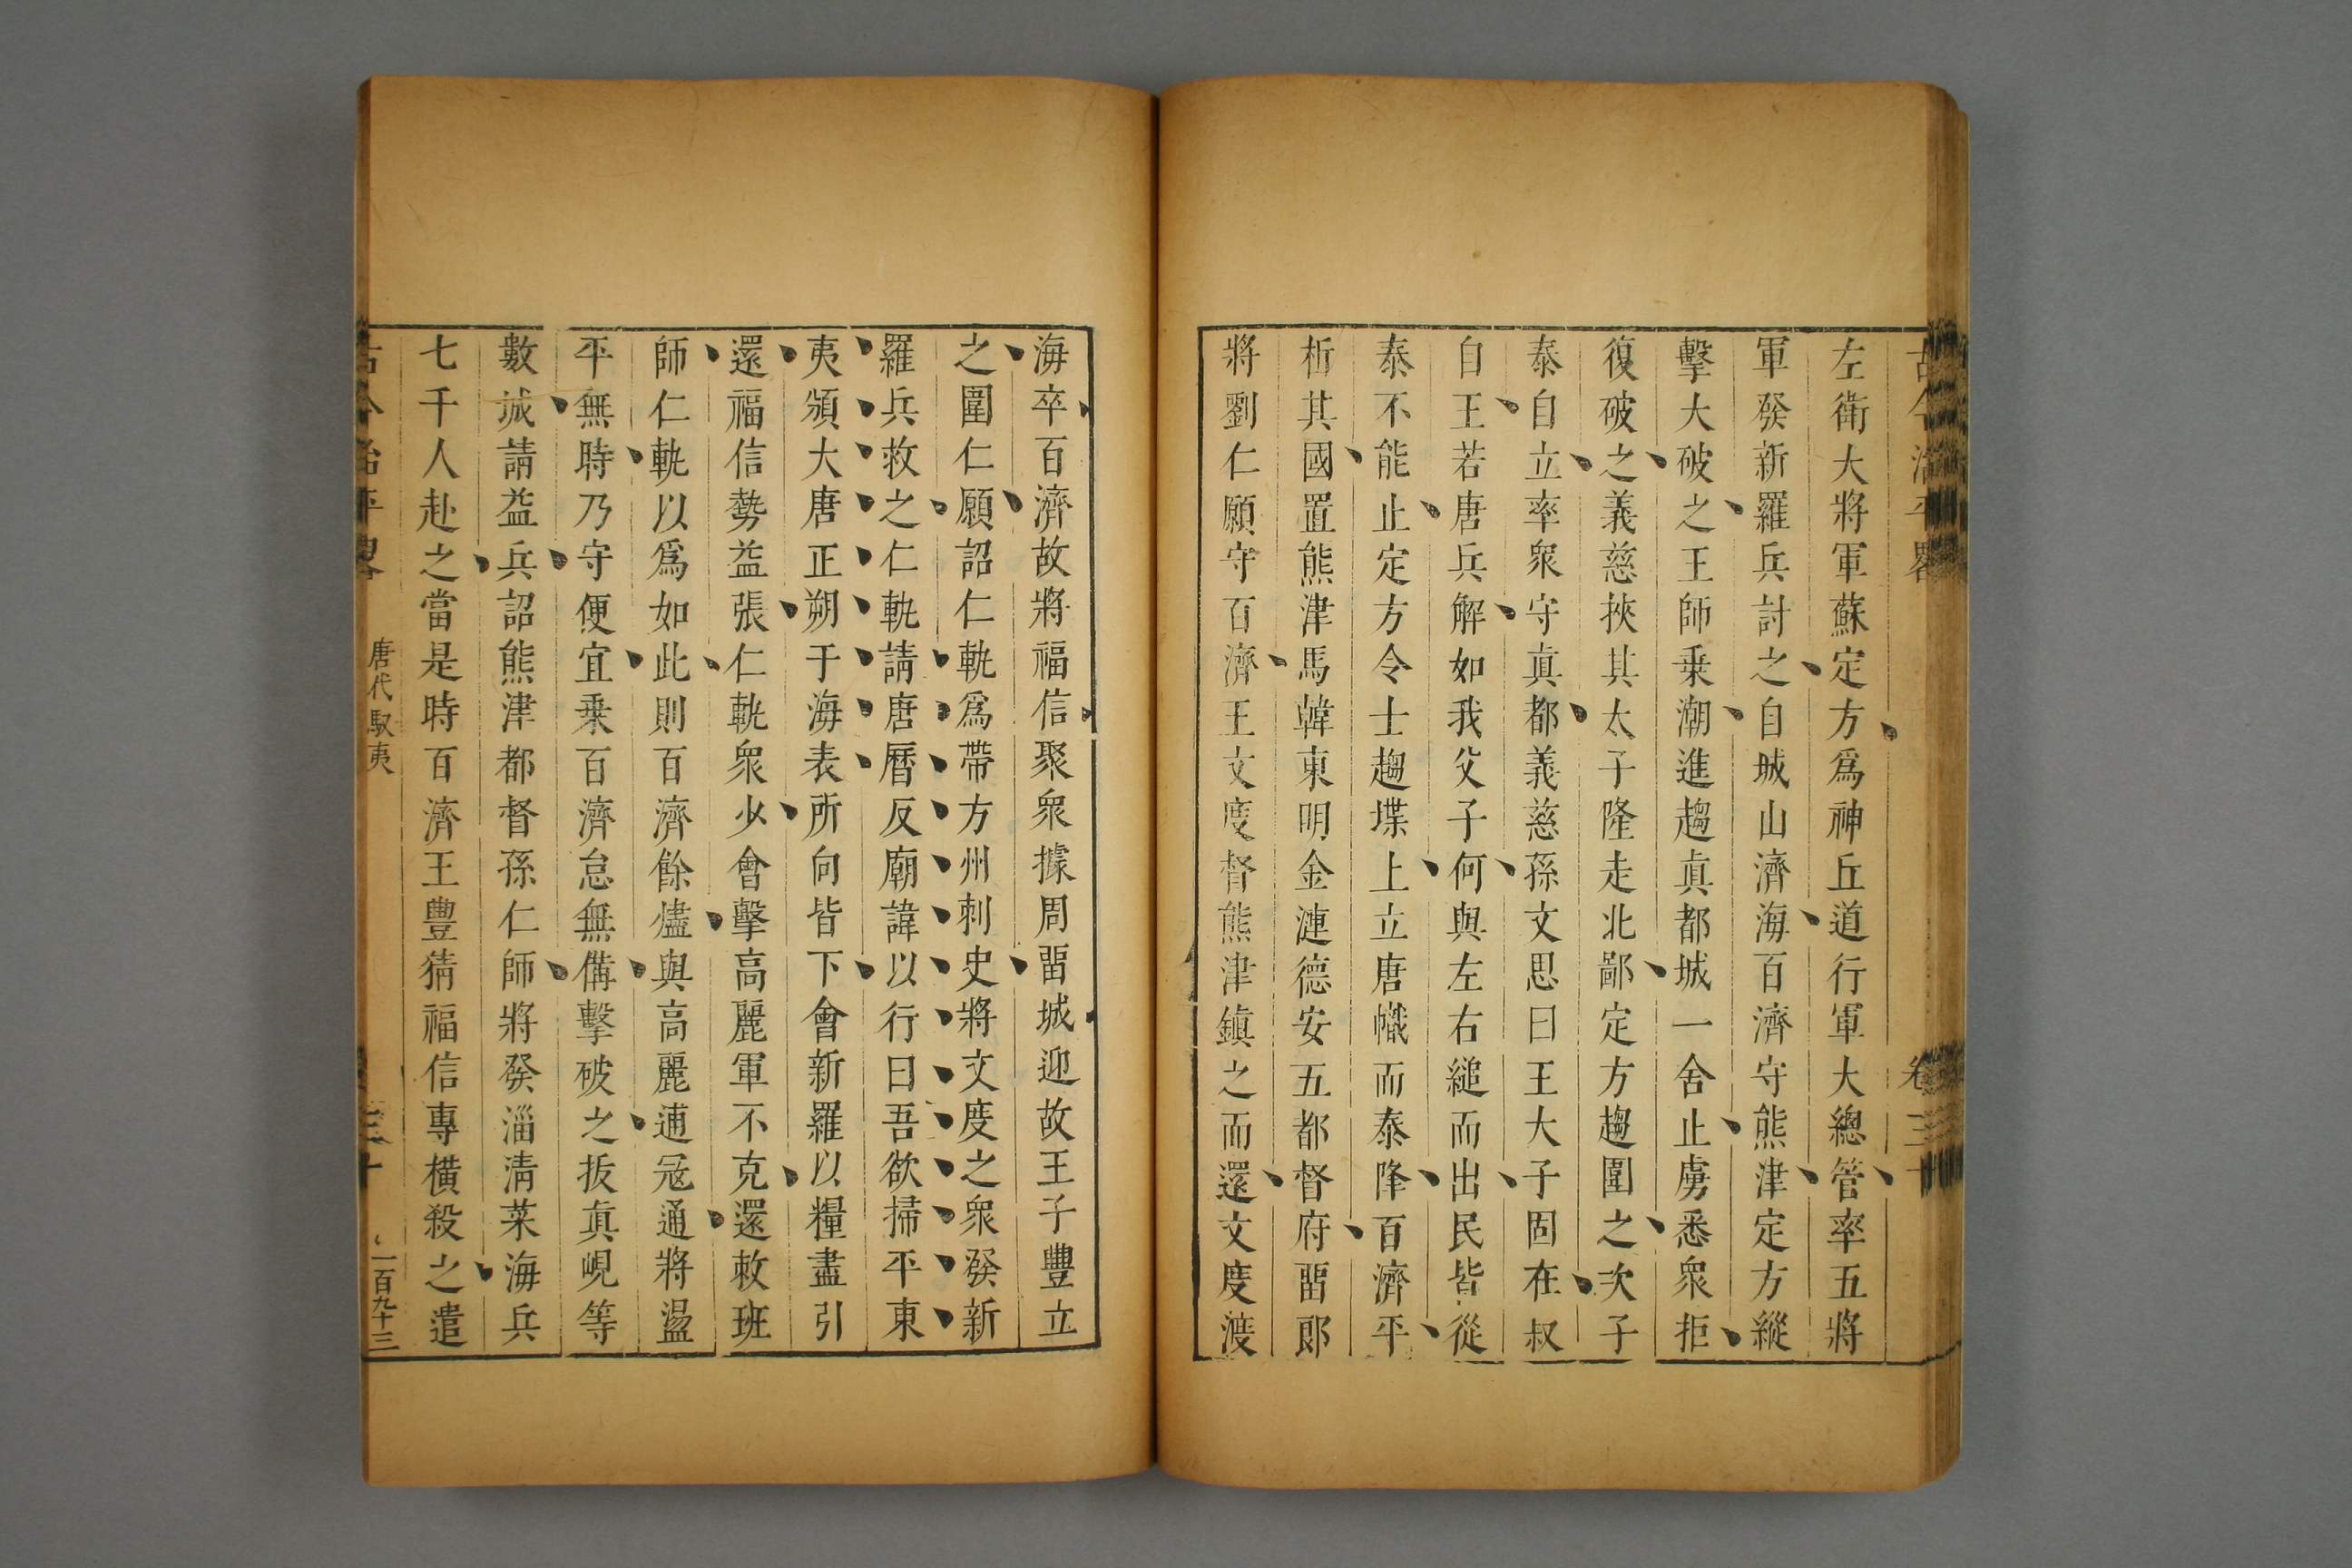 古今治平畧
卷三十
左衛大將軍蘇定方爲神丘道行軍大總管率五將
軍發新羅兵討之自城山濟海百濟守熊津定方縱
擊大破之王師乗潮進趨真都城一舍止虜悉衆拒
復破之義慈挾其太子隆走北鄙定方趨圍之次子
泰自立率衆守真都義慈孫文思曰王大子固在叔
自王若唐兵解如我父子何與左右縋而出民皆從
泰不能止定方令士趨堞上立唐幟而泰降百濟平
析其國置熊津馬韓東明金漣德安五都督府畱郎
將劉仁願守百濟王文度督熊津鎮之而還文度渡
海卒百濟故將福信聚衆據周畱城迎故王子豐立
之圍仁願詔仁軌爲帶方州刺史將文度之衆發新
羅兵救之仁軌請唐曆反廟諱以行曰吾欲掃平東
夷頒大唐正朔于海表所向皆下會新羅以糧盡引
還福信勢益張仁軌衆少會擊高麗軍不克還敕班
師仁軌以爲如此則百濟餘燼與高麗逋冦通將盪
平無時乃守便宜乗百濟怠無備擊破之抜真峴等
數城請益兵詔熊津都督孫仁師將發淄淸萊海兵
七千人赴之當是時百濟王豐猜福信專橫殺之遣
古今治平畧
唐代馭夷
三十
一百九十三